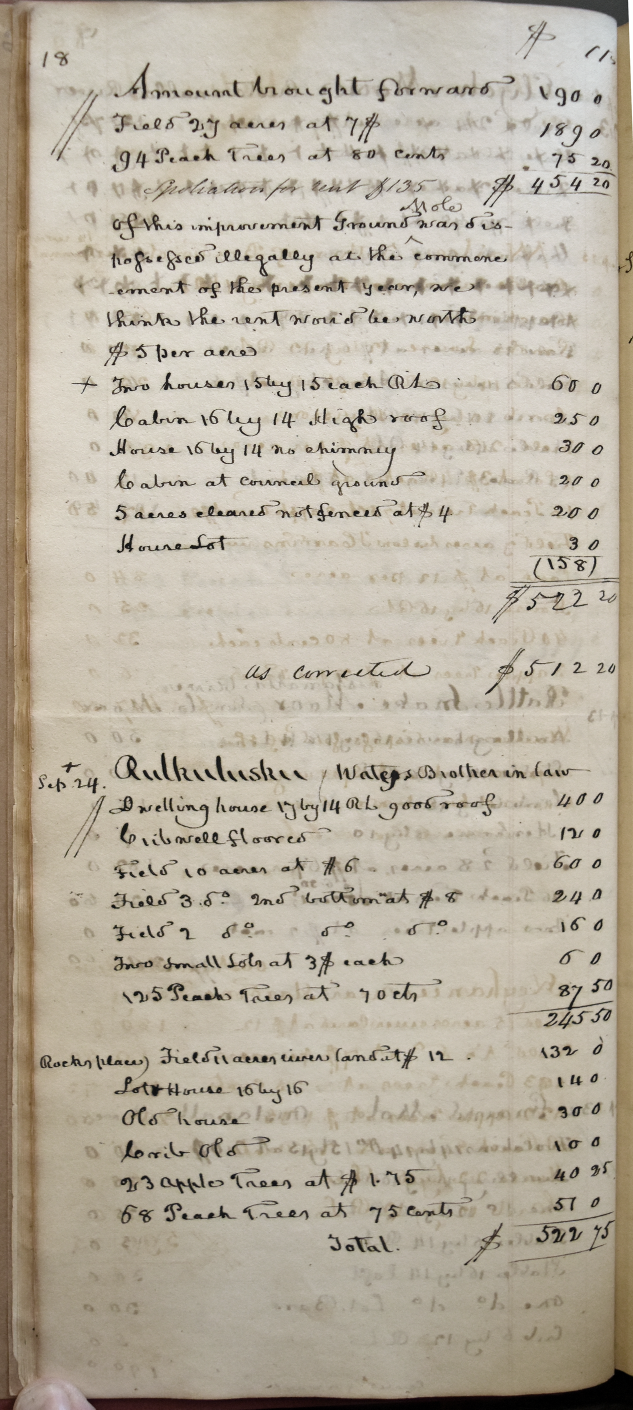 18 $
Amount brought forward 190 0
Field 27 acres at 7$ 189 0
94 Peach Trees at 80 cents 75 20
Spoliation for rent $135 $ 454 20
Mole
of this improvement Ground was dis-
possessed illegally at the ^ commenc
-ement of the present year, we
think the rent would be worth
$5 per acre
+ Two houses 15 by 15 each RL 60 0
Cabin 16 by 14 High roof 25 0
House 16 by 14 no chimney 30 0
Cabin at council ground 20 0
5 acres cleared not fenced at $4 20 0
House Lot 3 0
(158)
$522 20
as corrected $512 20
Sept. 24. Qulkuluskee, Waters Brother in law
Dwelling house 17 by 14 RL good roof 40 0
Crib well floored 12 0
Field 10 acres at $6 60 0
Field 3 do 2nd bottom at $8 24 0
Field 2 do do do 16 0
Two small Lots at 3$ each 6 0
125 Peach Trees at 70 cts 87 50
245 50
Rocks place) Field 11 acres river land at $12. 132 0
Lot & House 16 by 16 14 0
Old house 30 0
Crib Old 10 0
23 Apple Trees at $1.75 40 25
68 Peach Trees at 75 cents 51 0
Total. $ 522 75